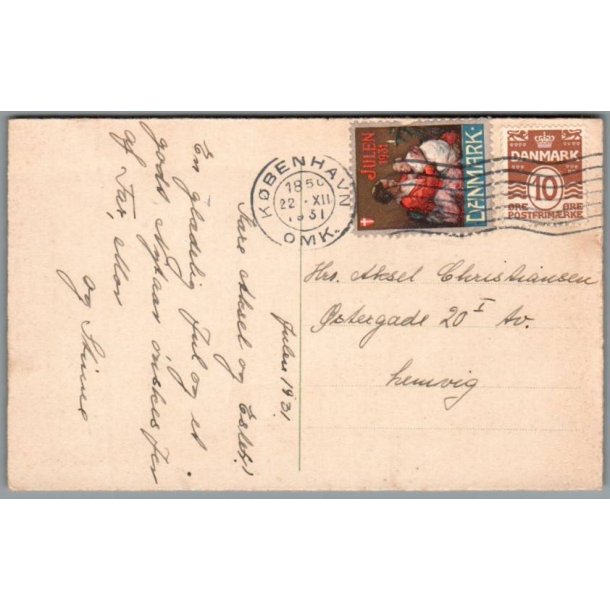 JULEN
1931
DANMARK.
DANMARK
10
ØRE ØRE
POSTFRIMÆRKE
KØBENHAVN
1850
22 · XII
1931
OMK.
Hrs. Aksel Christiansen
Østergade 20 I Av.
Lemvig
Julen 1931
Kære Aksel og Ester!
En glædelig Jul og et
godt Nytaar ønskes jer
af Far, Mor
og Stinne